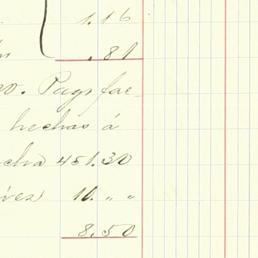 1.16
.81
o. Pags fac-
hechas á
cha 451.30
vez 16. " "
8.50